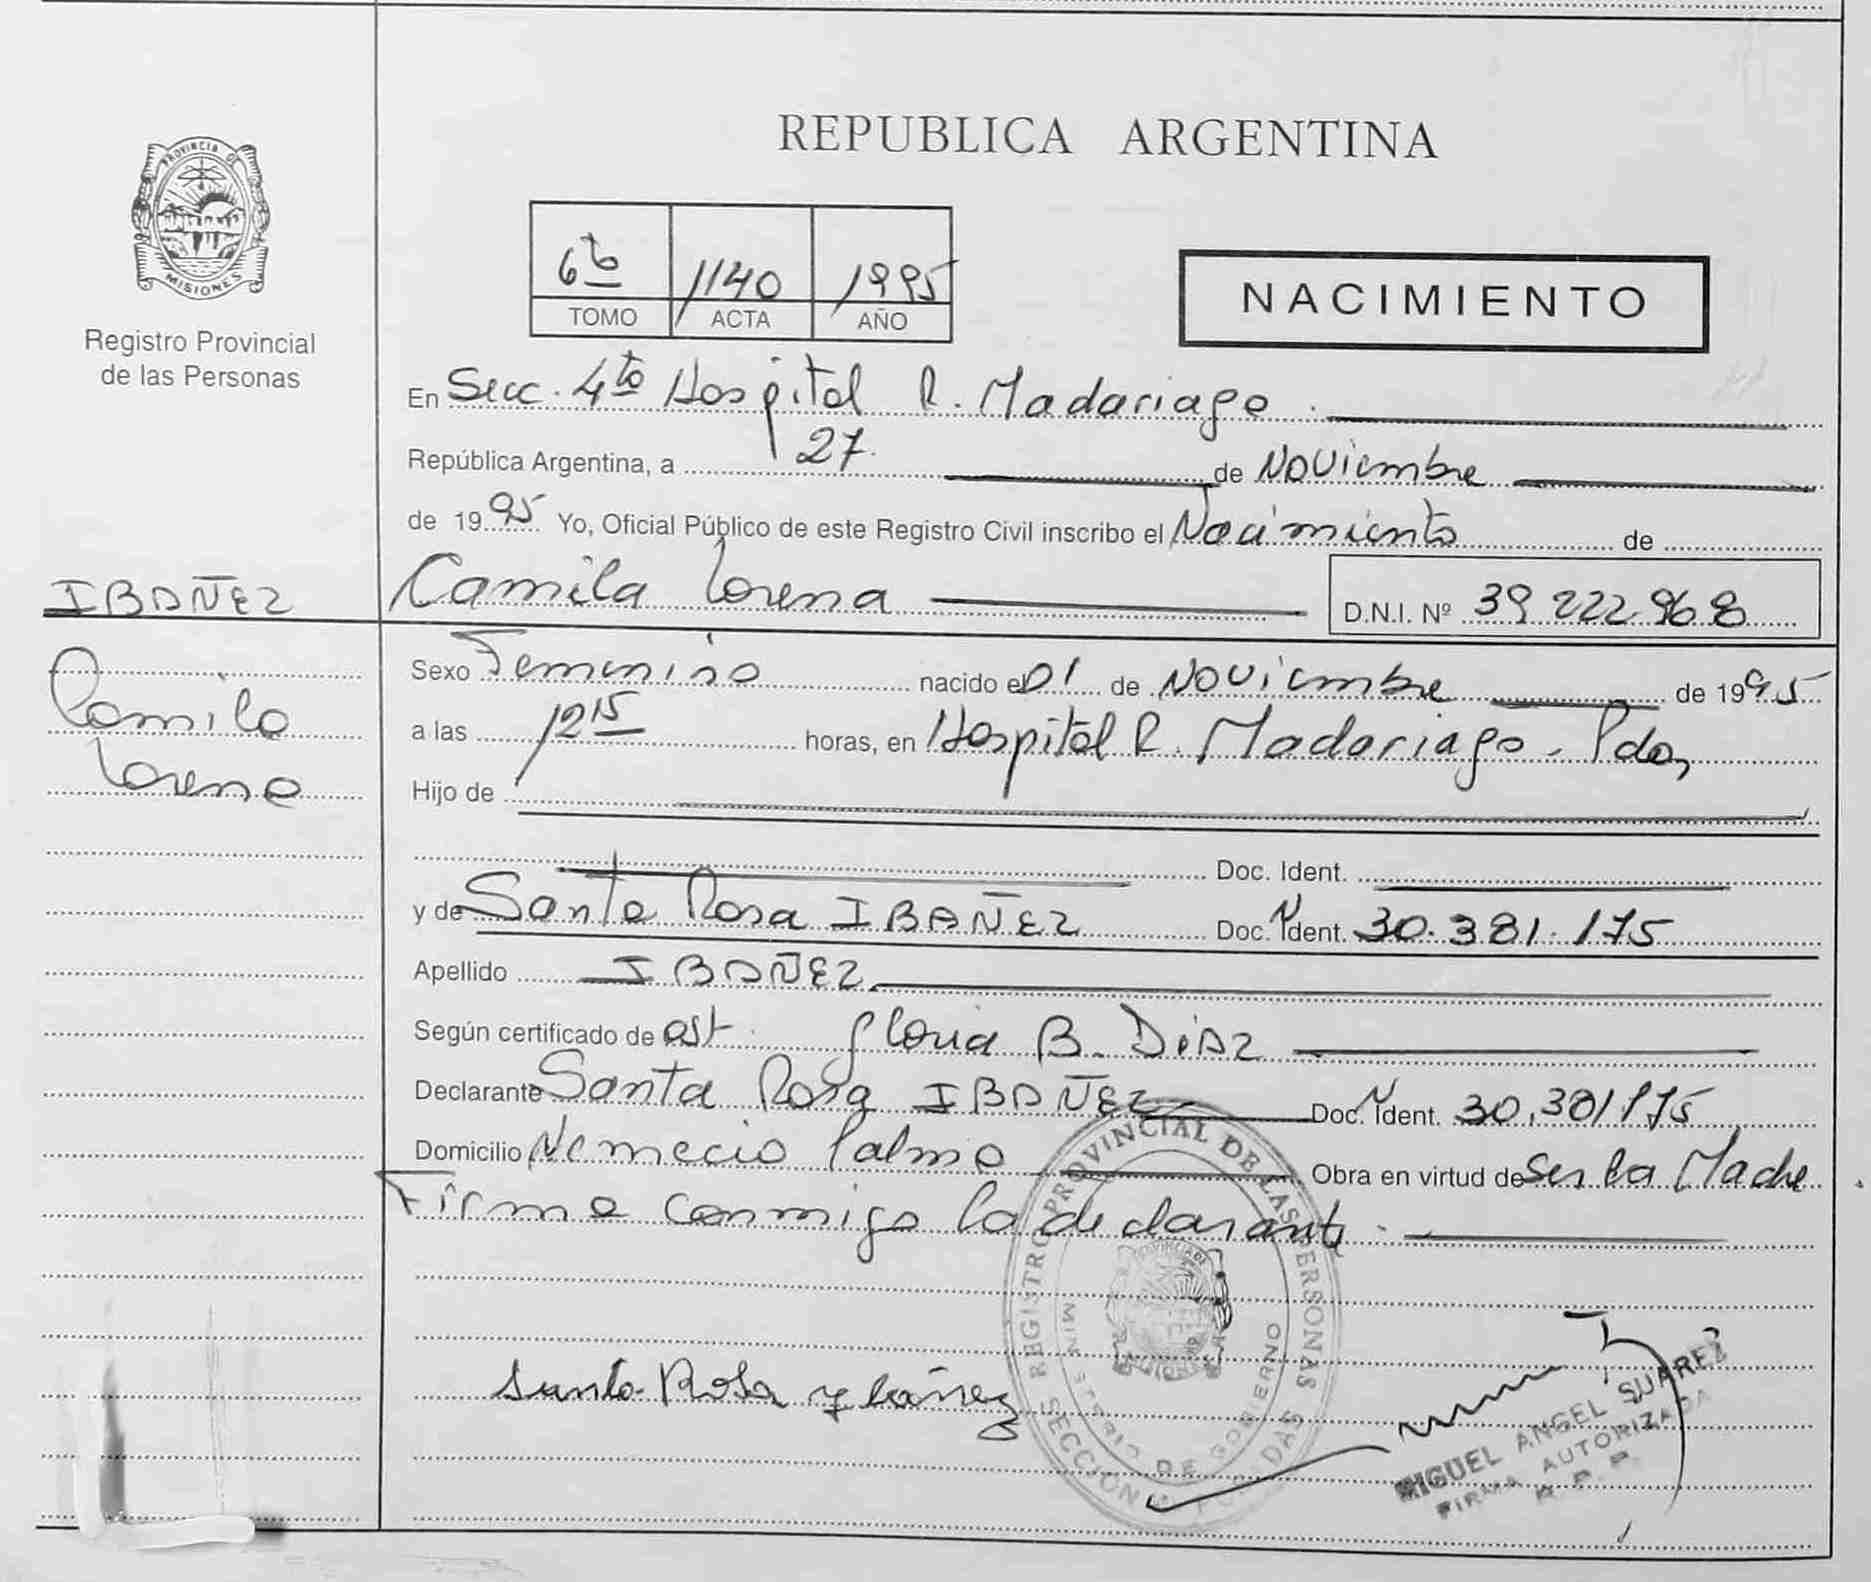 REPUBLICA ARGENTINA
PROVINCIA DE
MISIONES
Registro Provincial
de las Personas
6to 1140 1995
TOMO ACTA AÑO
NACIMIENTO
En Secc. 4to Hospital R. Madariaga.
República Argentina, a 27 de Noviembre
de 1995 Yo, Oficial Público de este Registro Civil inscribo el Nacimiento de
IBAÑEZ
Camila Lorena
D.N.I. Nº 39.222.968
Camila
Lorena
Sexo Femenino nacido el 01 de Noviembre de 1995
a las 12 15 horas, en Hospital R. Madariaga. Pdas,
Hijo de
Doc. Ident.
y de Santa Rosa IBAÑEZ Doc. Ident. 30.381.175
Apellido IBAÑEZ
Según certificado de ost. Gloria B. Diaz
Declarante Santa Rosa IBAÑEZ Doc. Ident. 30.381175
Domicilio Nemecio Palma Obra en virtud de Ser la Madre
Firma conmigo la declarante.
Santa Rosa Ybañez
REGISTRO PROVINCIAL DE LAS PERSONAS
MINISTERIO DE GOBIERNO
SECCION
MIGUEL ANGEL SUAREZ
FIRMA AUTORIZADA
R. P. P.